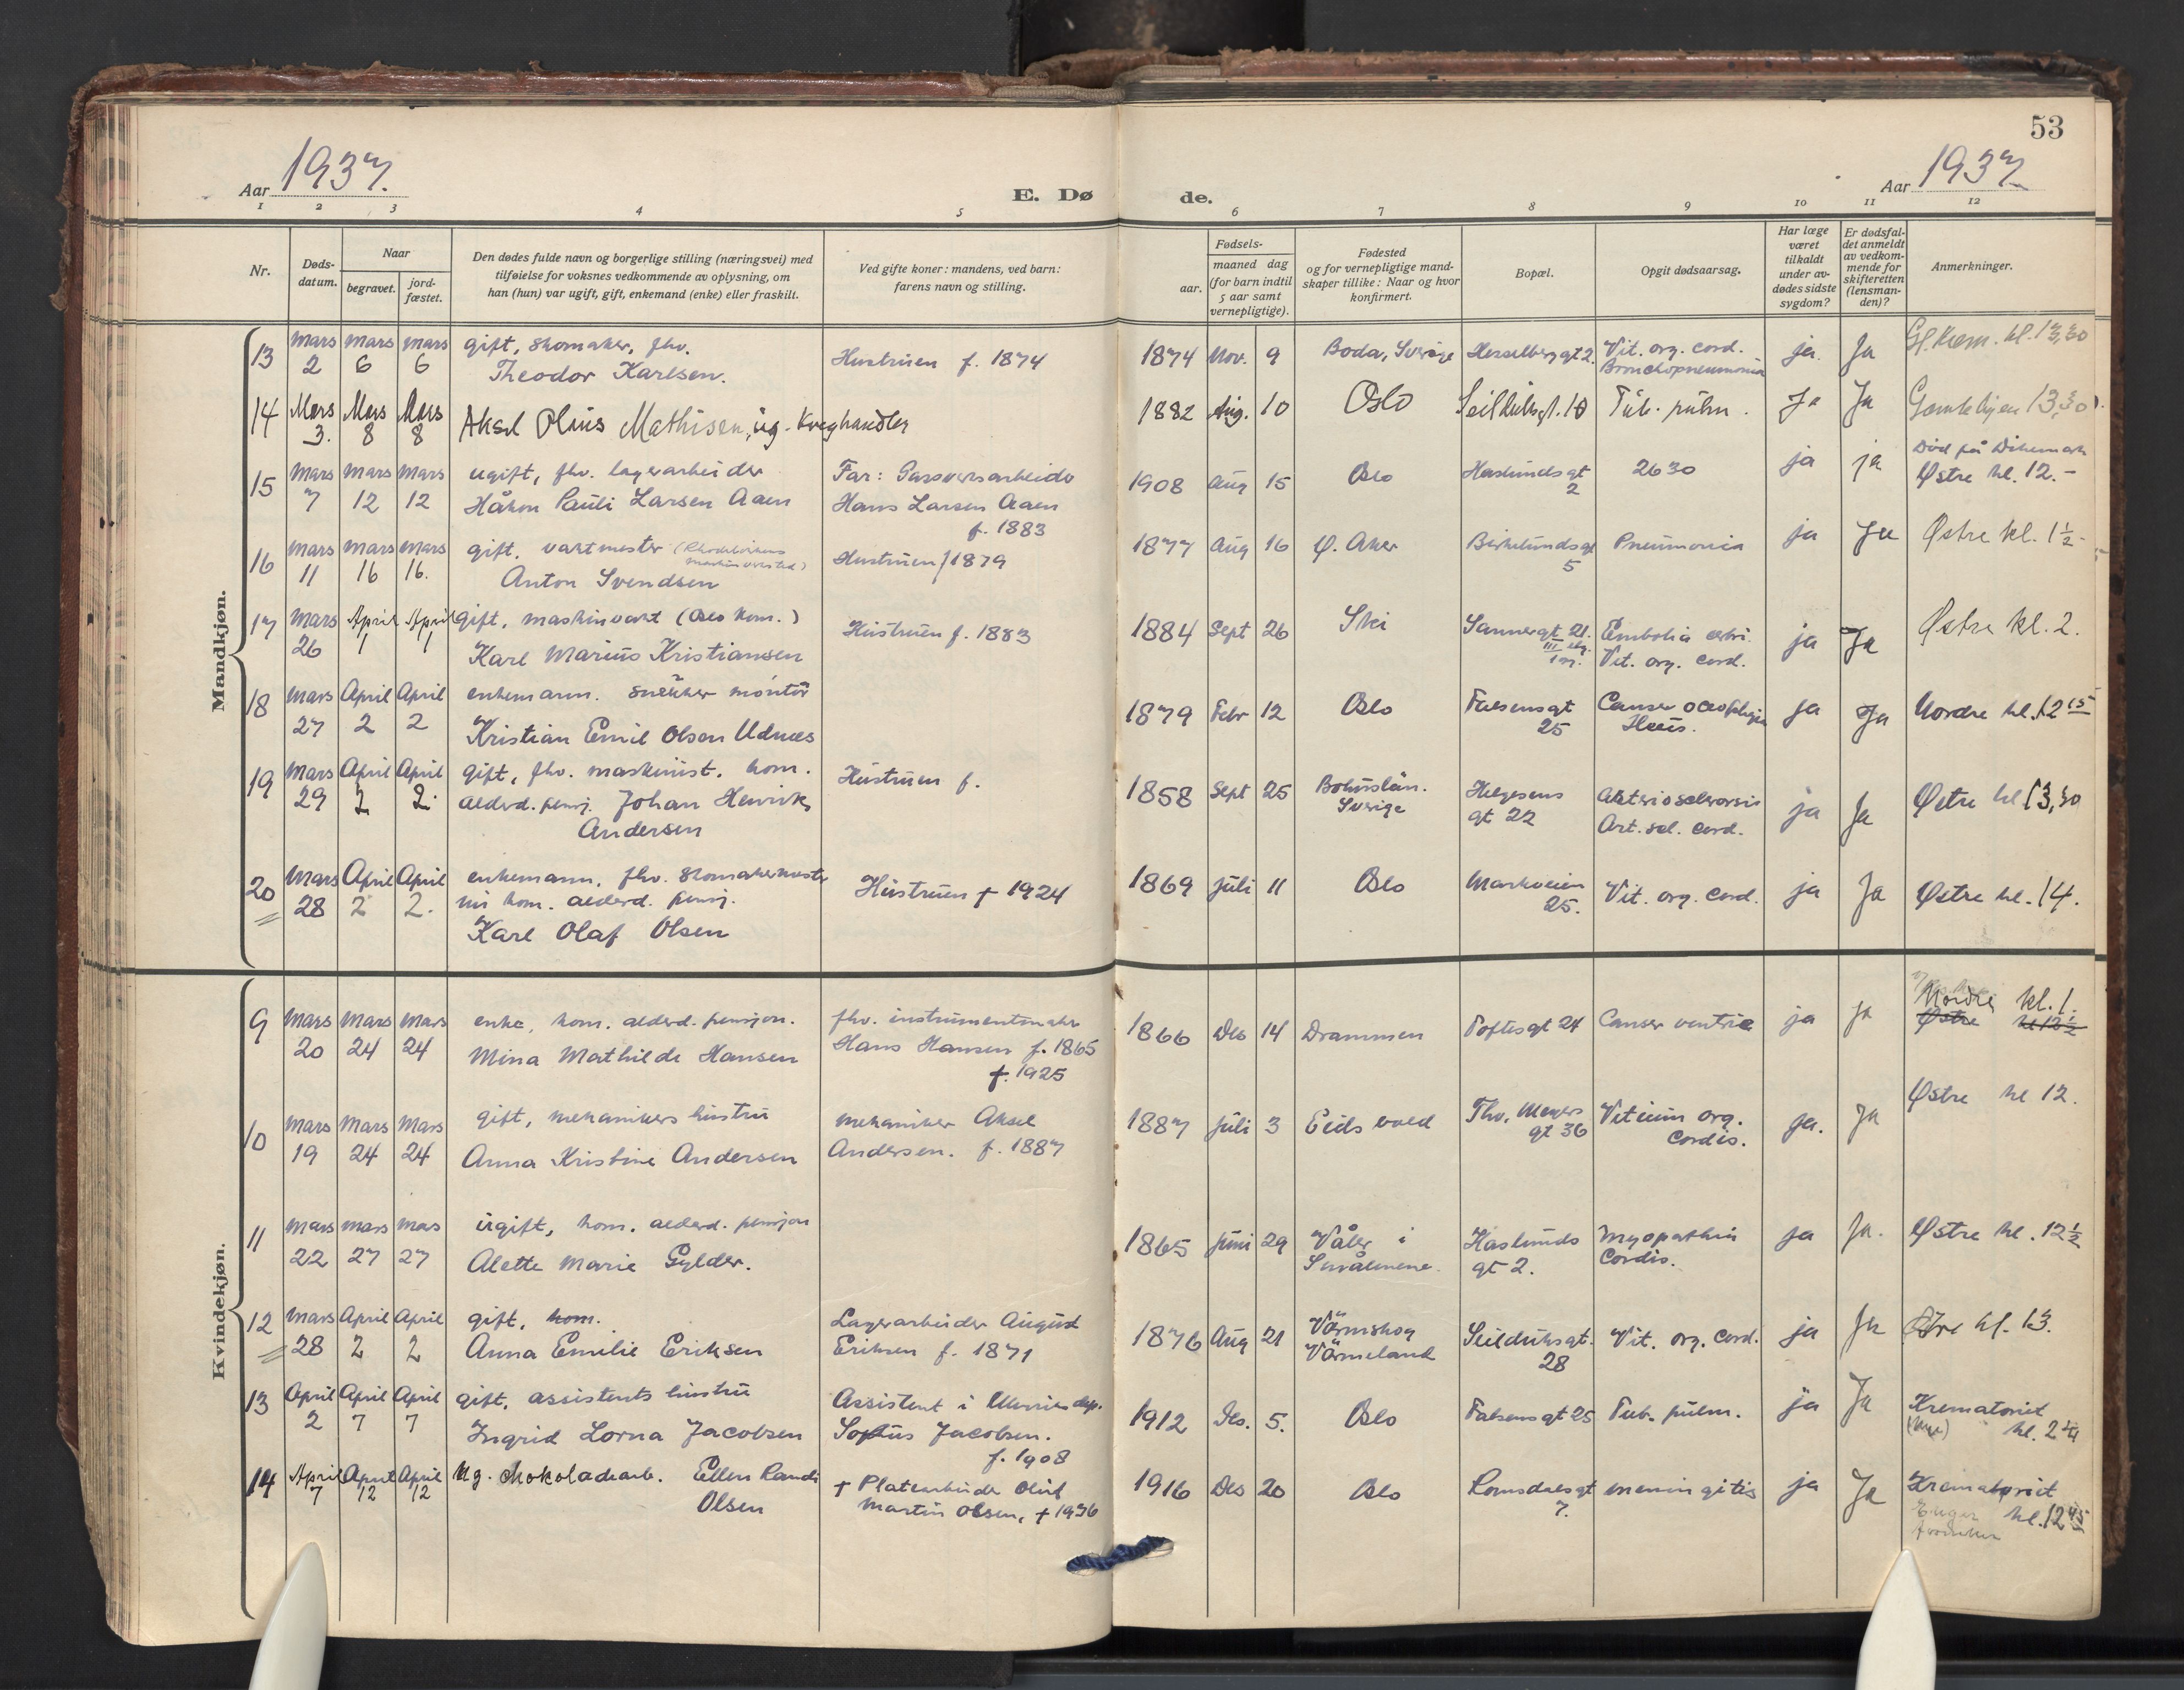 53
Aar 1937.
E. Dø
de.
Aar 1937
1 2 3 4 5 6 7 8 9 10 11 12
Nr.
Døds-
datum.
Naar
begravet.
jord-
fæstet.
Den dødes fulde navn og borgerlige stilling (næringsvei) med
tilføielse for voksnes vedkommende av oplysning, om
han (hun) var ugift, gift, enkemand (enke) eller fraskilt.
Ved gifte koner: mandens, ved barn:
farens navn og stilling.
Fødsels-
aar.
maaned dag
(for barn indtil
5 aar samt
vernepligtige).
Fødested
og for vernepligtige mand-
skaper tillike: Naar og hvor
konfirmert.
Bopæl.
Opgit dødsaarsag.
Har læge
været
tilkaldt
under av-
dødes sidste
sygdom?
Er dødsfal-
det anmeldt
av vedkom-
mende for
skifteretten
(lensman-
den)?
Anmerkninger.
Mandkjøn.
13 Mars 2 Mars 6 Mars 6 gift, skomaker, fhv.
Theodor Karlsen.
Hustruen f. 1874
1874 Nov. 9 Boda, Sverige Hesselberggt 2. Vit. org. cord.
Bronchopneumonia
ja. Ja Gl. krem. kl. 13,30
14 Mars 3. Mars 8 Mars 8 Aksel Olius Mathisen, ug. Kveghandler
1882 Aug. 10 Oslo Seilduksgt. 10 Tub. pulm. Ja Ja Gamlebyen 13,30
15 Mars 7 Mars 12 Mars 12 ugift, fhv. lagerarbeider
Håkon Pauli Larsen Aaen
Far: Gassverksarbeider
Hans Larsen Aaen
f. 1883
1908 Aug 15 Oslo Haslunds gt
2
2630 ja ja Død på Dikemark
Østre kl. 12.-
16 Mars 11 Mars 16 Mars 16. gift. vaktmester
Anton Svendsen
Hustruen f 1879
1877 Aug 16 Ø. Aker Birkelunds gt
5
Pneumonia ja Ja Østre kl. 1 1/2
17 Mars 26 April 1 April 1 gift, maskinvakt (Oslo kom.)
Karl Marius Kristiansen
Hustruen f. 1883
1884 Sept 26 Ski Sannergt 21.
III etg.
Embolia cebri.
Vit. org. cord.
ja Ja Østre kl. 2.
18 Mars 27 April 2 April 2 enkemann. snekker montør
Kristian Emil Olsen Udnæs
1879 Febr 12 Oslo Falsens gt
25
Cancer oesophagia
ja Ja Nordre kl. 12 15
19 Mars 29 April 2 April 2. gift, fhv. maskinist. kom.
alderd. pensj. Johan Henrik
Andersen
Hustruen f.
1858 Sept 25 Bohuslän.
Sverige
Helgesens
gt 22
Arteriosclerosis
Art. scl. cord.
ja Ja Østre kl 13,30
20 Mars 28 April 2 April 2. enkemann, fhv. skomakermester
nu kom. alderd. pensj.
Karl Olaf Olsen
Hustruen † 1924
1869 Juli 11 Oslo Markveien
25.
Vit. org. cord. ja Ja Østre kl. 14.
Kvindekjøn.
9 Mars 20 Mars 24 Mars 24 enke, kom. alderd. pensjon.
Mina Mathilde Hansen
fhv. instrumentmaker
Hans Hansen f. 1865
†. 1925
1866 Des 14 Drammen Toftesgt 24 Cancer ventric ja ja Nordre kl. 1.
Østre kl 12 1/2
10 Mars 19 Mars 24 Mars 24 gift, mekanikers hustru
Anna Kristine Andersen
mekaniker Aksel
Andersen. f. 1887
1887 Juli 3 Eidsvold Thv. Meyers
gt 36
Vitium org.
cordis.
ja. Ja Østre kl 12.
11 Mars 22 Mars 27 Mars 27 ugift, kom. alderd. pensjon
Alette Marie Gylder.
1865 Juni 29 Våler i
Smålenene.
Haslunds
gt 2.
Myopathia
Cordis.
ja Ja. Østre kl. 12 1/2
12 Mars 28 April 2 April 2 gift, kom.
Anna Emilie Eriksen
Lagerarbeider August
Eriksen f. 1871
1876 Aug 21 Värmskog
Värmeland
Seilduksgt.
28
Vit. org. cord. ja Ja Østre kl. 13.
13 April 2 April 7 April 7 gift, assistents hustru
Ingrid Lorna Jacobsen
Assistent i
Sophus Jacobsen.
f. 1908
1912 Des. 5. Oslo Falsens gt 25 Tub. pulm. ja Ja Krematoriet
(Nye) kl. 2 1/4
14 April 7 April 12 April 12 Ug. chokoladearb. Ellen Randi
Olsen
† Platearbeider Oluf
Martin Olsen, † 1936
1916 Des 20 Oslo Romsdalsgt
7.
meningitis ja Ja Krematoriet
kl. 12 45